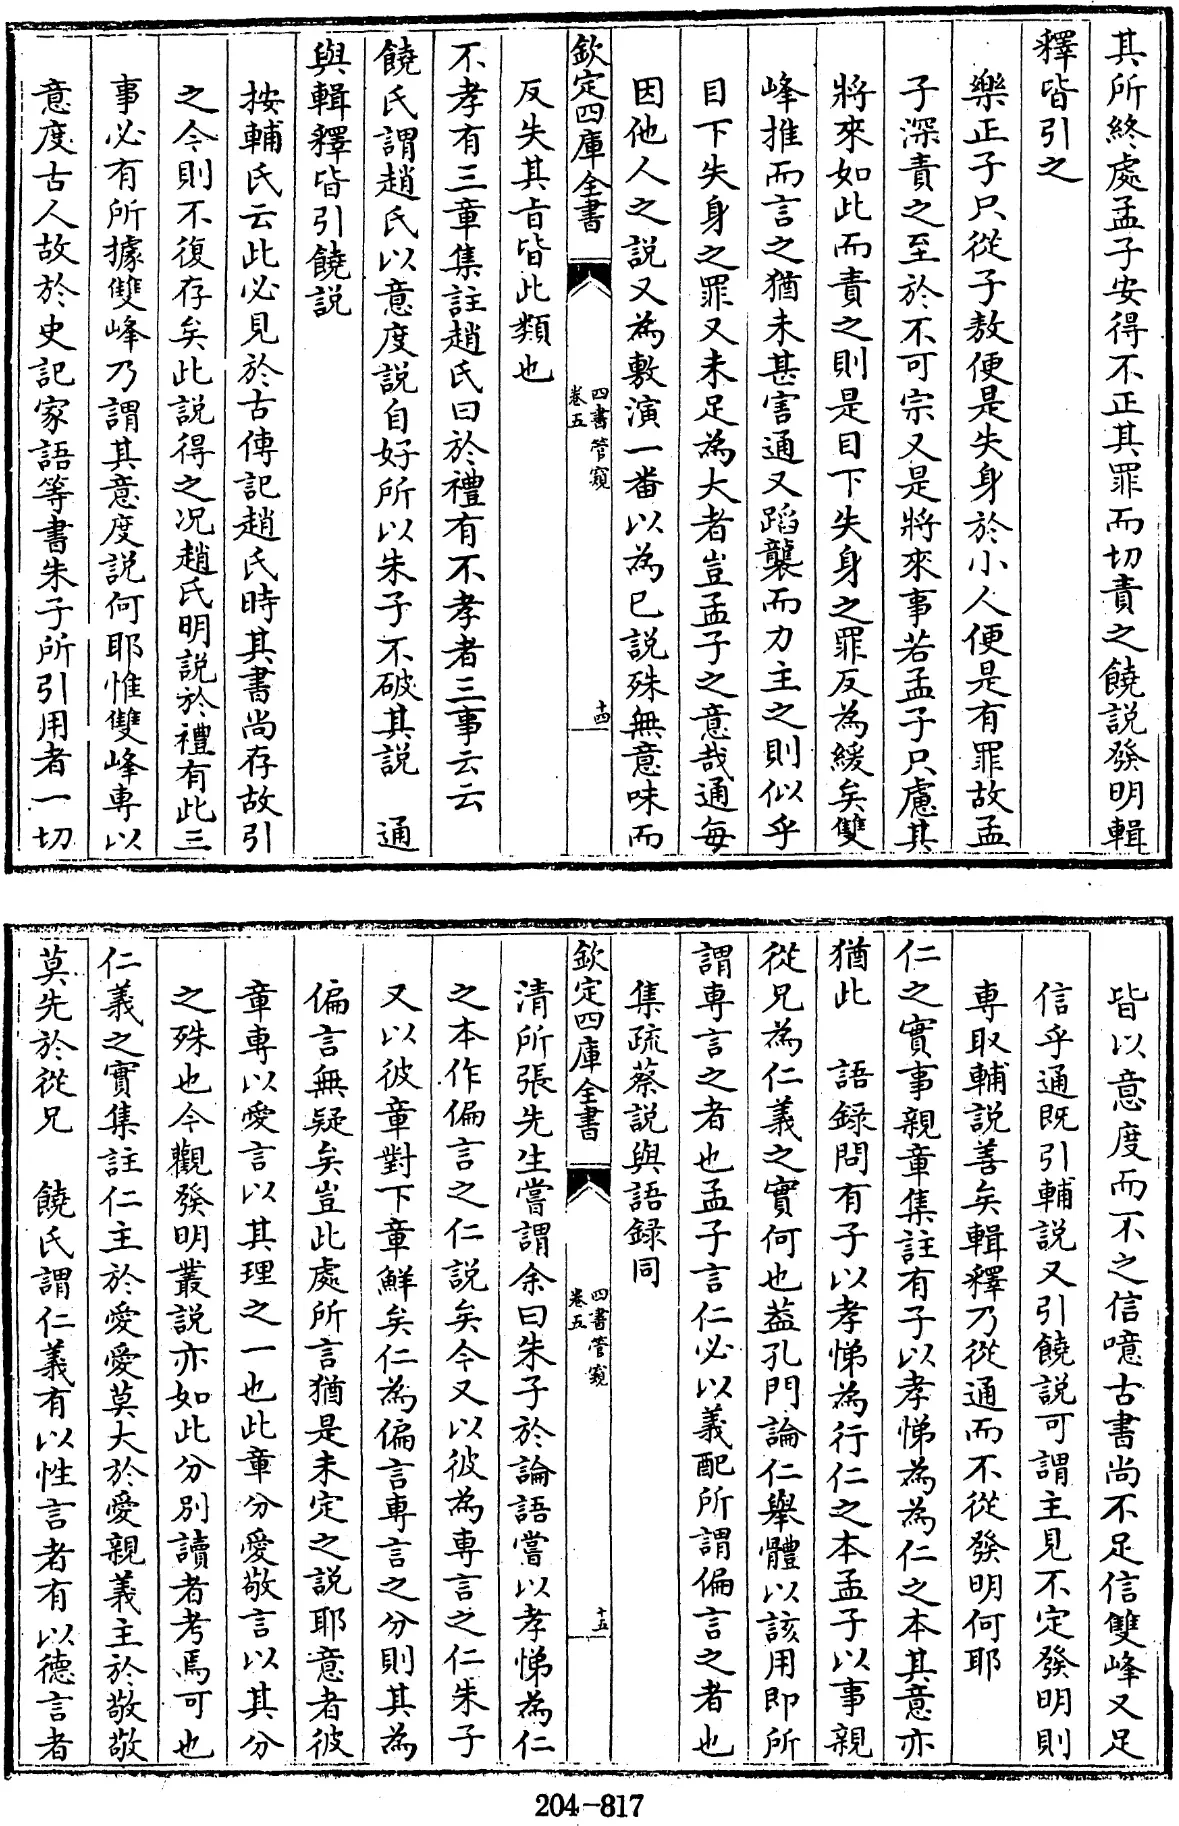 其所終處孟子安得不正其罪而切責之饒說發明輯
釋皆引之
樂正子只從子敖便是失身於小人便是有罪故孟
子深責之至於不可宗又是將來事若孟子只慮其
將來如此而責之則是目下失身之罪反為緩矣雙
峰推而言之猶未甚害通又蹈襲而力主之則似乎
目下失身之罪又未足為大者豈孟子之意哉通每
因他人之說又為敷演一番以為已說殊無意味而
欽定四庫全書
四書管窺
卷五
十四
反失其㫖皆此類也
不孝有三章集註趙氏曰於禮有不孝者三事云云
饒氏謂趙氏以意度說自好所以朱子不破其說 通
與輯釋皆引饒說
按輔氏云此必見於古傳記趙氏時其書尚存故引
之今則不復存矣此說得之况趙氏明說於禮有此三
事必有所據雙峰乃謂其意度說何耶惟雙峰專以
意度古人故於史記家語等書朱子所引用者一切
皆以意度而不之信噫古書尚不足信雙峰又足
信乎通既引輔說又引饒說可謂主見不定發明則
專取輔說善矣輯釋乃從通而不從發明何耶
仁之實事親章集註有子以孝悌為為仁之本其意亦
猶此 語録問有子以孝悌為行仁之本孟子以事親
從兄為仁義之實何也葢孔門論仁舉體以該用即所
謂專言之者也孟子言仁必以義配所謂偏言之者也
集疏蔡說與語録同
欽定四庫全書
四書管窺
卷五
十五
清所張先生嘗謂余曰朱子於論語嘗以孝悌為仁
之本作偏言之仁說矣今又以彼為專言之仁朱子
又以彼章對下章鮮矣仁為偏言專言之分則其為
偏言無疑矣豈此處所言猶是未定之說耶意者彼
章專以愛言以其理之一也此章分愛敬言以其分
之殊也今觀發明叢說亦如此分別讀者考焉可也
仁義之實集註仁主於愛愛莫大於愛親義主於敬敬
莫先於從兄 饒氏謂仁義有以性言者有以德言者
204-817